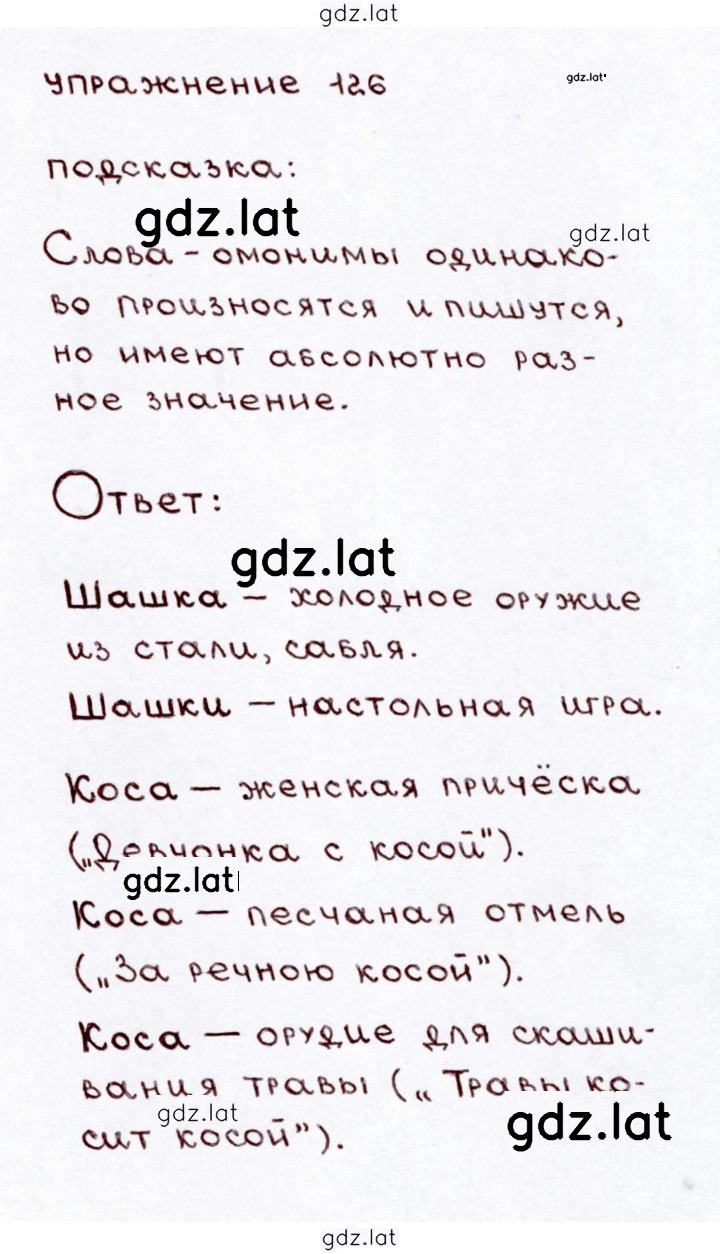 gdz.lat
упражнение 126
gdz.lat
подсказка:
gdz.lat
gdz.lat
Слова - омонимы одинако-
во произносятся и пишутся,
но имеют абсолютно раз-
ное значение.
Ответ:
gdz.lat
Шашка – холодное оружие
из стали, сабля.
Шашки – настольная игра.
Коса – женская причёска
(„Девчонка с косой").
gdz.lat
Коса – песчаная отмель
(„За речною косой").
Коса – орудие для скаши-
вания травы („Травы ко-
gdz.lat
gdz.lat
сит косой").
gdz.lat